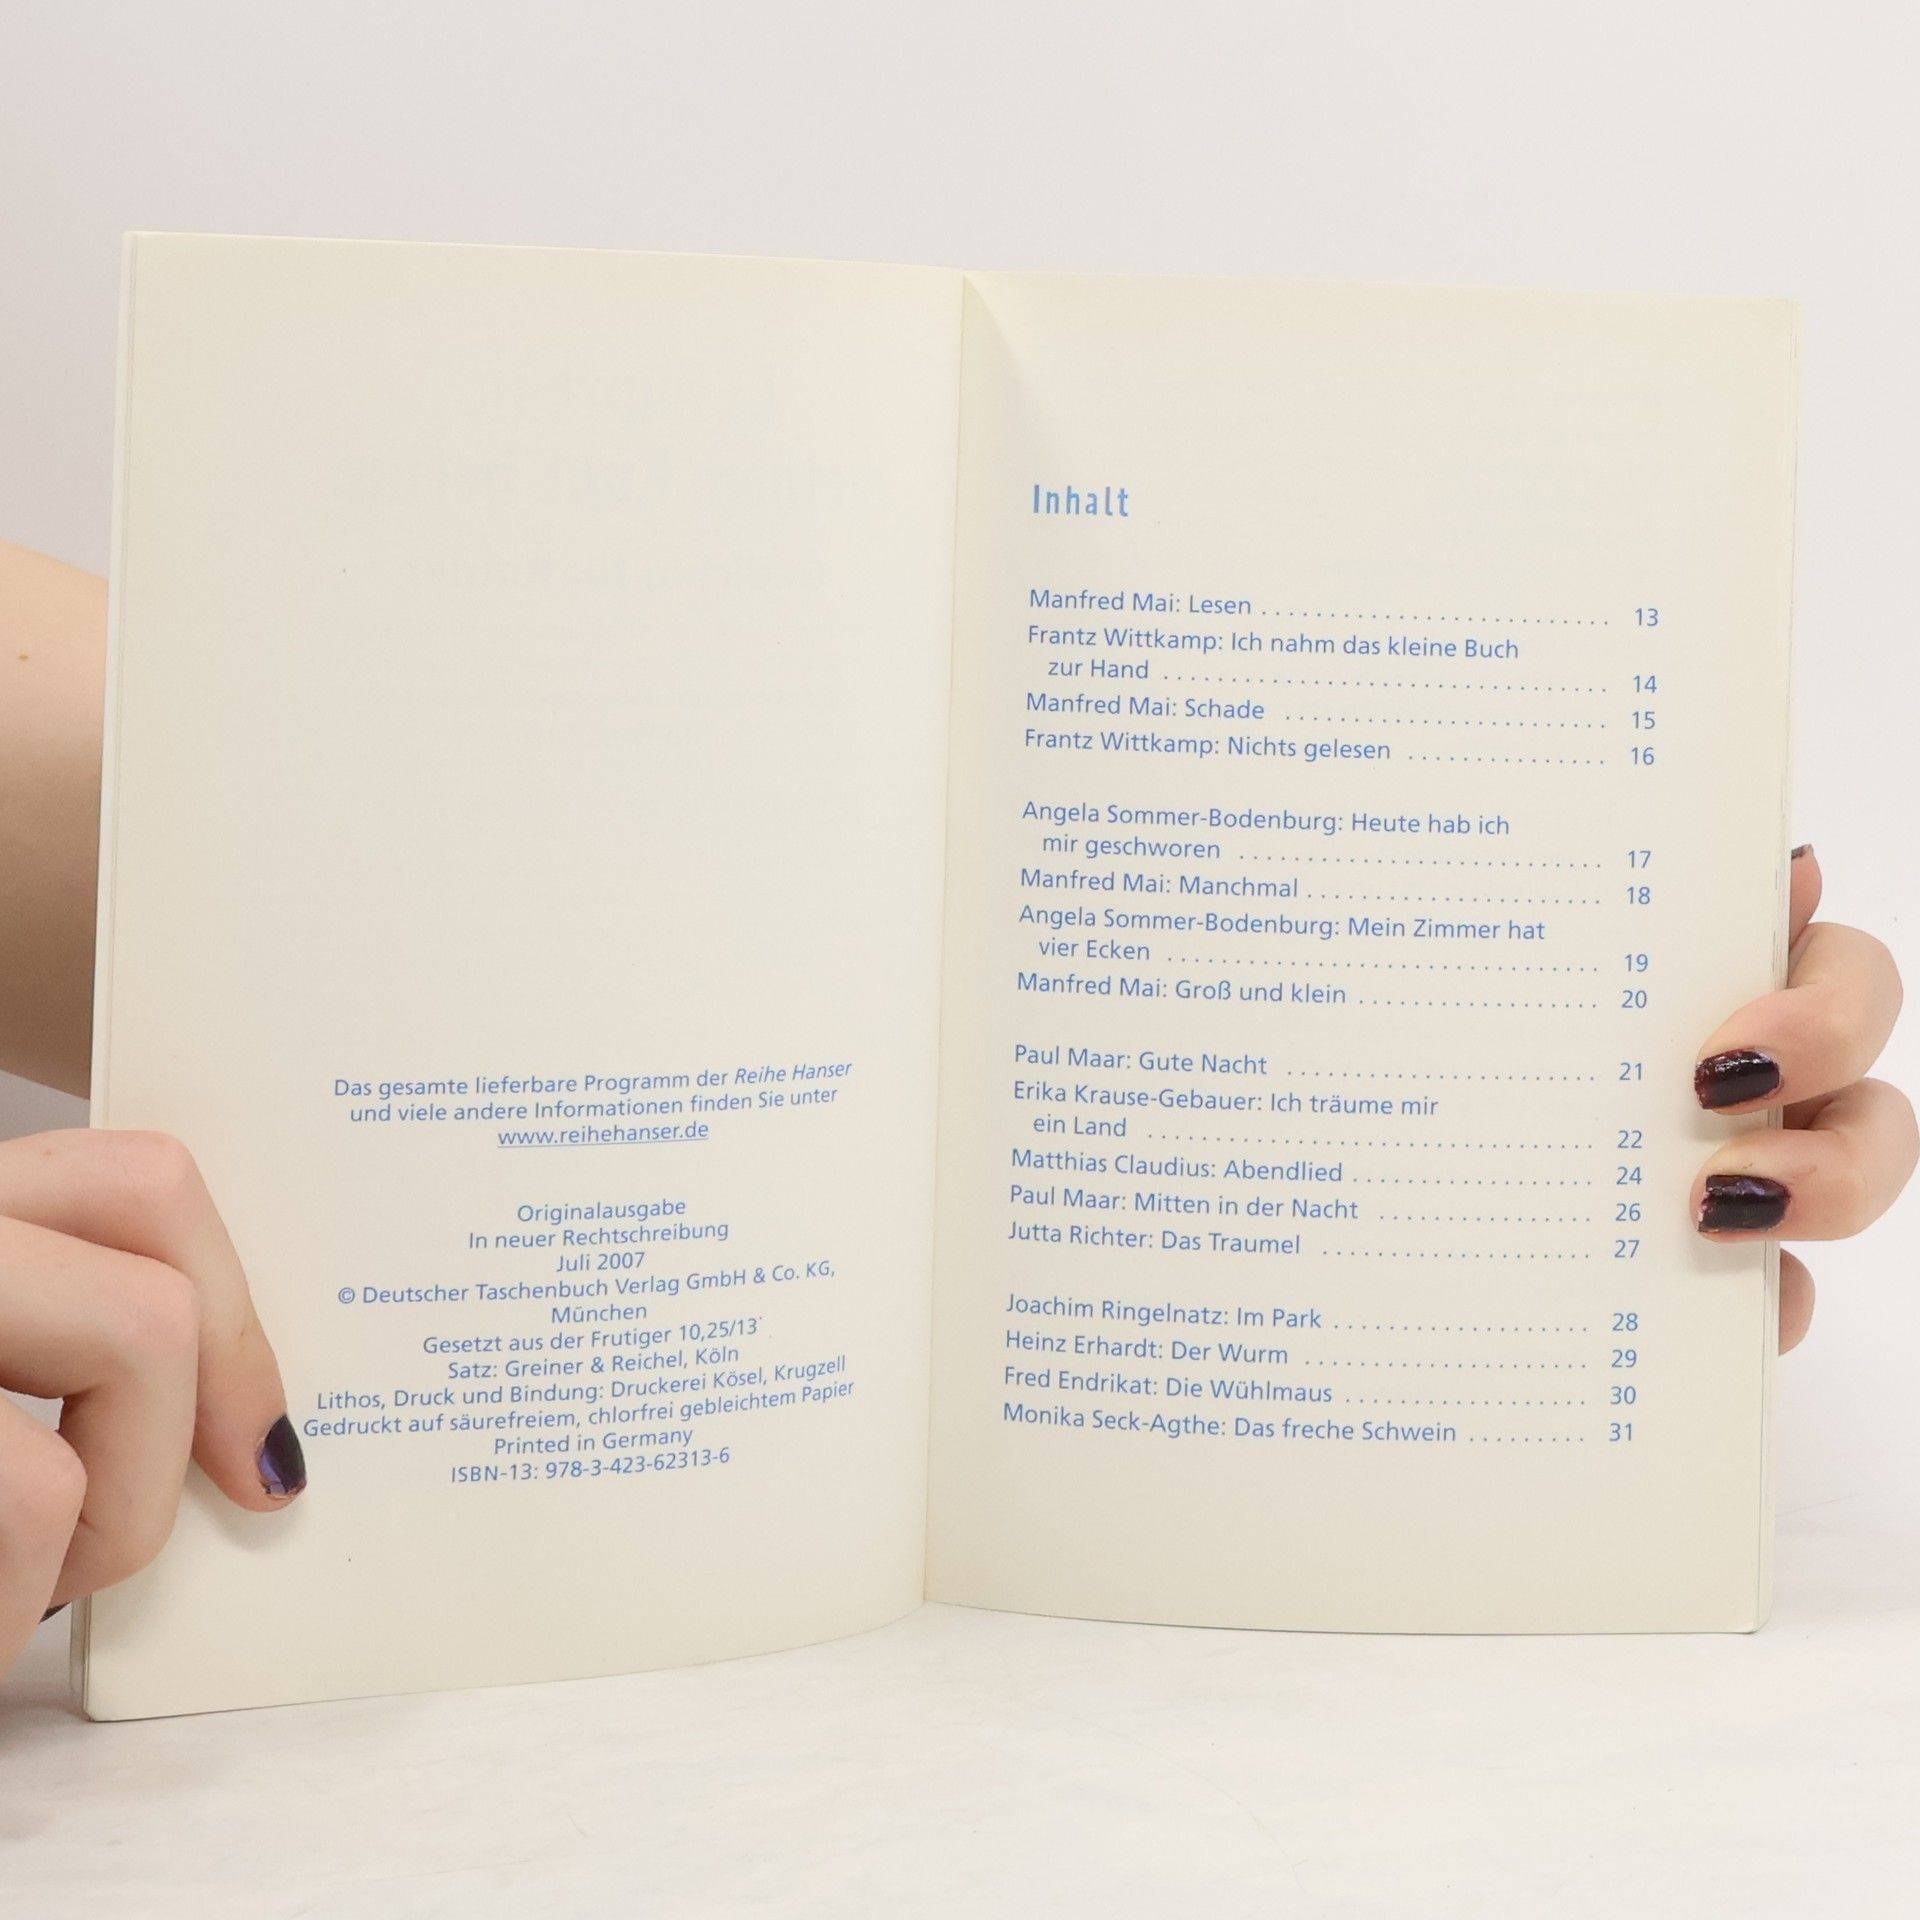 Das gesamte lieferbare Programm der Reihe Hanser
und viele andere Informationen finden Sie unter
www.reihehanser.de
Originalausgabe
In neuer Rechtschreibung
Juli 2007
© Deutscher Taschenbuch Verlag GmbH & Co. KG,
München
Gesetzt aus der Frutiger 10,25/13˙
Satz: Greiner & Reichel, Köln
Lithos, Druck und Bindung: Druckerei Kösel, Krugzell
Gedruckt auf säurefreiem, chlorfrei gebleichtem Papier
Printed in Germany
ISBN-13: 978-3-423-62313-6
Inhalt
Manfred Mai: Lesen . . . . . . . . . . . . . . . . . . . . . . . . . . 13
Frantz Wittkamp: Ich nahm das kleine Buch
zur Hand . . . . . . . . . . . . . . . . . . . . . . . . . . . . . . . . . 14
Manfred Mai: Schade . . . . . . . . . . . . . . . . . . . . . . . . 15
Frantz Wittkamp: Nichts gelesen . . . . . . . . . . . . . . . 16
Angela Sommer-Bodenburg: Heute hab ich
mir geschworen . . . . . . . . . . . . . . . . . . . . . . . . . . . 17
Manfred Mai: Manchmal . . . . . . . . . . . . . . . . . . . . . . 18
Angela Sommer-Bodenburg: Mein Zimmer hat
vier Ecken . . . . . . . . . . . . . . . . . . . . . . . . . . . . . . . . 19
Manfred Mai: Groß und klein . . . . . . . . . . . . . . . . . . 20
Paul Maar: Gute Nacht . . . . . . . . . . . . . . . . . . . . . . . 21
Erika Krause-Gebauer: Ich träume mir
ein Land . . . . . . . . . . . . . . . . . . . . . . . . . . . . . . . . . 22
Matthias Claudius: Abendlied . . . . . . . . . . . . . . . . . . 24
Paul Maar: Mitten in der Nacht . . . . . . . . . . . . . . . . 26
Jutta Richter: Das Traumel . . . . . . . . . . . . . . . . . . . . 27
Joachim Ringelnatz: Im Park . . . . . . . . . . . . . . . . . . . 28
Heinz Erhardt: Der Wurm . . . . . . . . . . . . . . . . . . . . . 29
Fred Endrikat: Die Wühlmaus . . . . . . . . . . . . . . . . . . 30
Monika Seck-Agthe: Das freche Schwein . . . . . . . . . 31